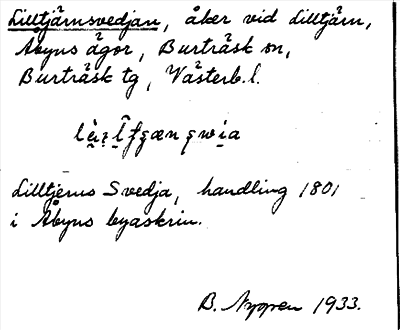 Lilltjärnsvedjan, åker vid Lilltjärn,
Åbyns ägor, Burträsk sn,
Burträsk tg, Västerb. l.
Lilltjerns Svedja, handling 1801
i Åbyns byaskrin.
B. Nyppen 1933.